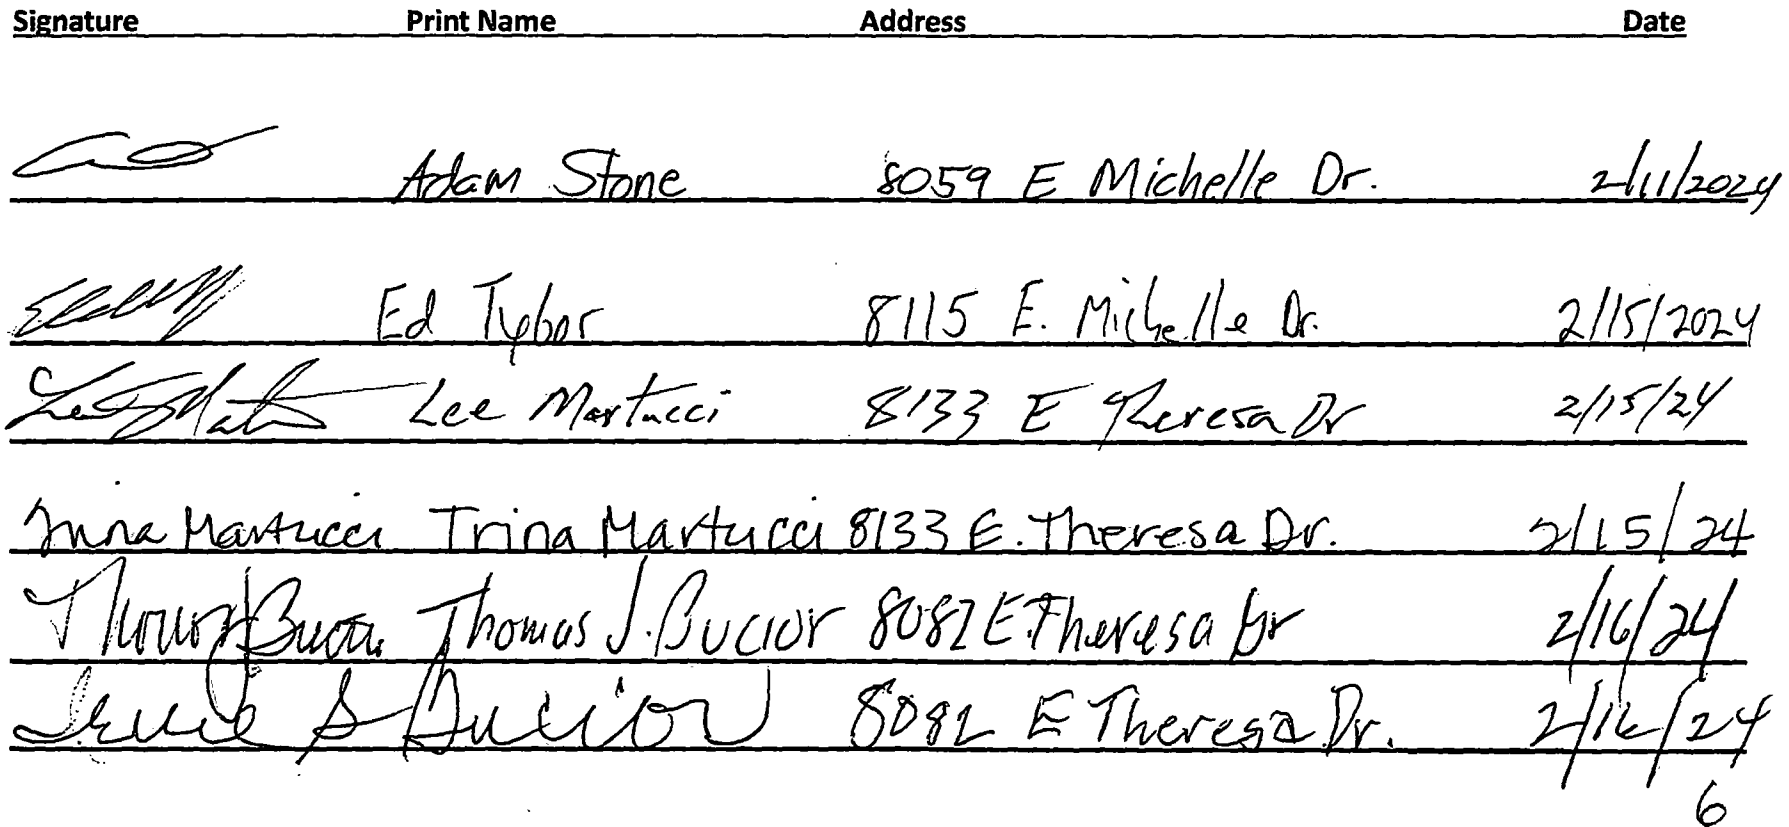 Signature Print Name Address Date
Adam Stone 8059 E Michelle Dr. 2/11/2024
Ed Tybor 8115 E. Michelle Dr. 2/15/2024
Lee Martucci 8133 E Theresa Dr 2/15/24
Trina Martucci Trina Martucci 8133 E. Theresa Dr. 2/15/24
Thomas J. Bucior 8082 E. Theresa Dr 2/16/24
S Bucior 8082 E Theresa Dr. 2/16/24
6